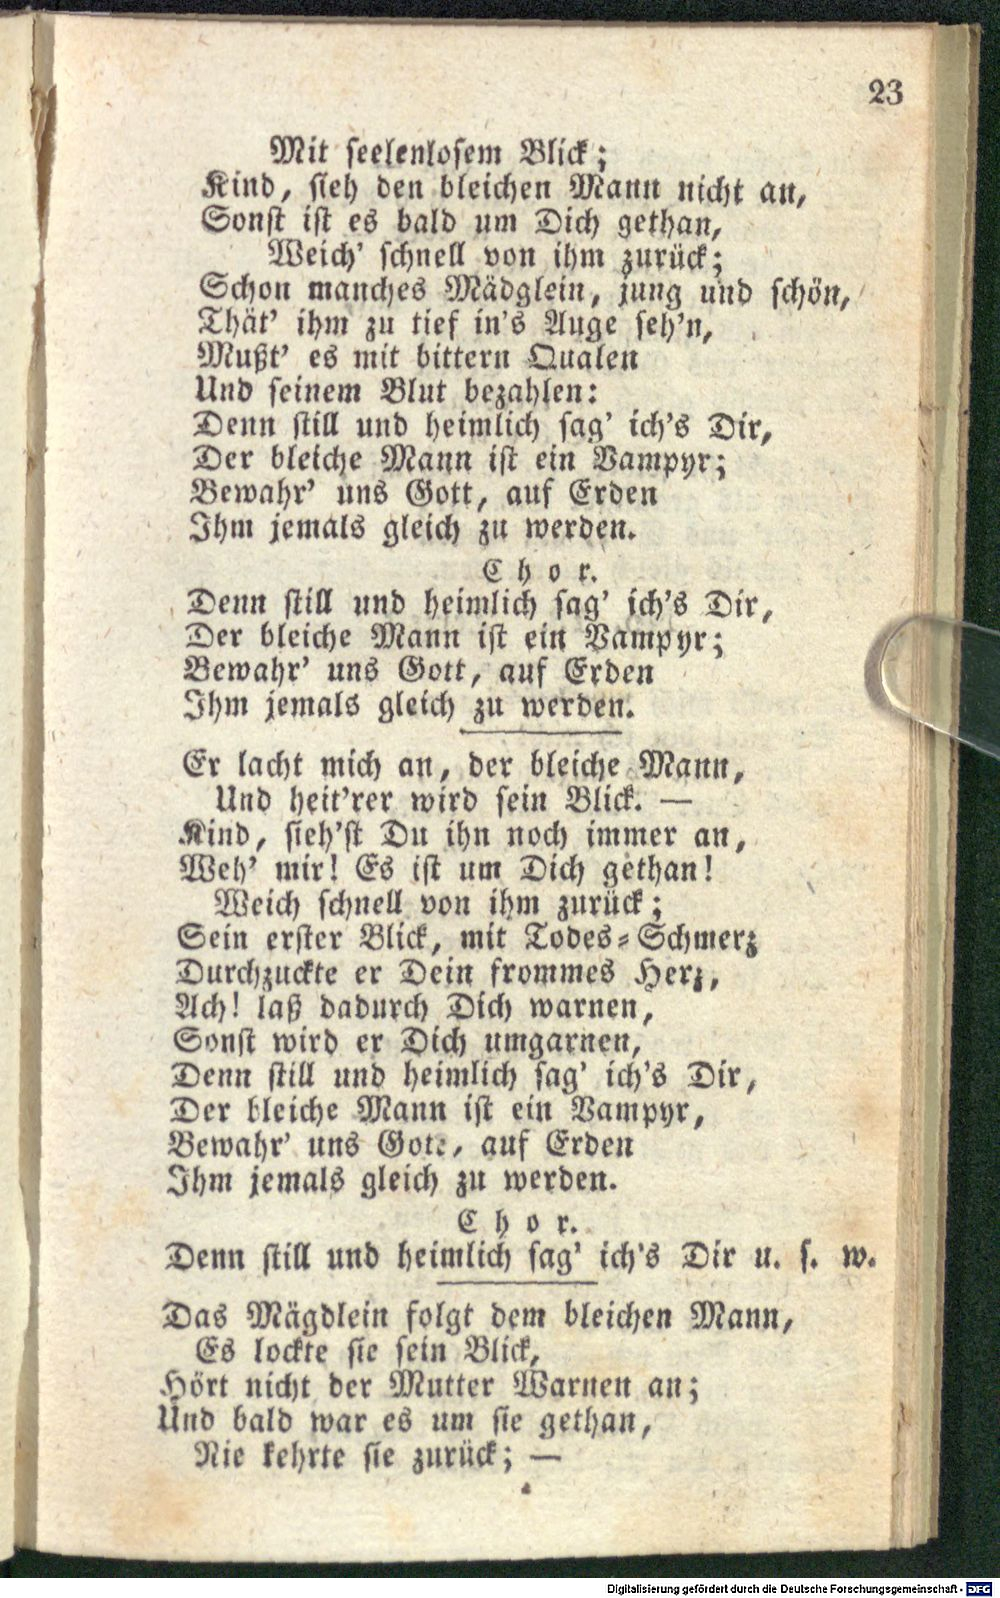 23
Mit seelenlosem Blick;
Kind, sieh den bleichen Mann nicht an,
Sonst ist es bald um Dich gethan,
Weich' schnell von ihm zurück;
Schon manches Mädglein, jung und schön,
Thät' ihm zu tief in's Auge seh'n,
Mußt' es mit bittern Qualen
Und seinem Blut bezahlen:
Denn still und heimlich sag' ich's Dir,
Der bleiche Mann ist ein Vampyr;
Bewahr' uns Gott, auf Erden
Ihm jemals gleich zu werden.
Chor.
Denn still und heimlich sag' ich's Dir,
Der bleiche Mann ist ein Vampyr;
Bewahr' uns Gott, auf Erden
Ihm jemals gleich zu werden.
Er lacht mich an, der bleiche Mann,
Und heit'rer wird sein Blick. —
Kind, sieh'st Du ihn noch immer an,
Weh' mir! Es ist um Dich gethan!
Weich schnell von ihm zurück;
Sein erster Blick, mit Todes-Schmerz
Durchzuckte er Dein frommes Herz,
Ach! laß dadurch Dich warnen,
Sonst wird er Dich umgarnen,
Denn still und heimlich sag' ich's Dir,
Der bleiche Mann ist ein Vampyr,
Bewahr' uns Gott, auf Erden
Ihm jemals gleich zu werden.
Chor.
Denn still und heimlich sag' ich's Dir u. s. w.
Das Mägdlein folgt dem bleichen Mann,
Es lockte sie sein Blick,
Hört nicht der Mutter Warnen an;
Und bald war es um sie gethan,
Nie kehrte sie zurück; —
Digitalisierung gefördert durch die Deutsche Forschungsgemeinschaft - DFG